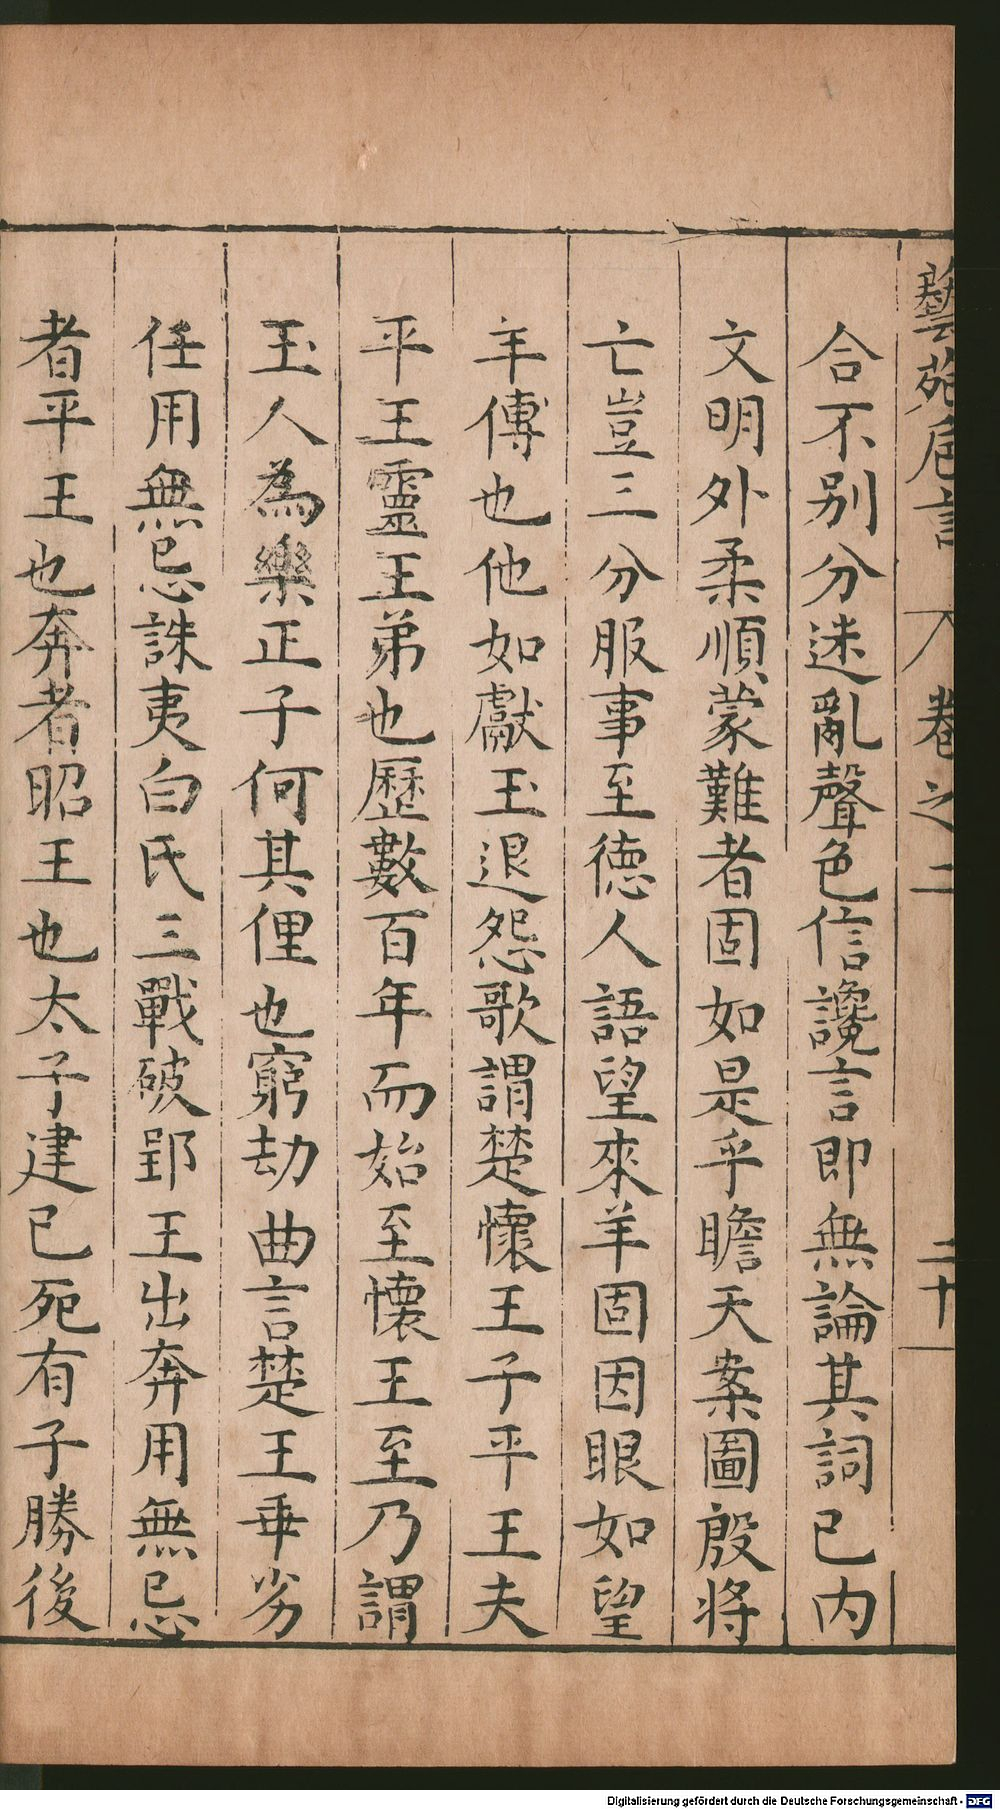 藝苑巵言 卷之二 二十一
合不别分迷亂聲色信讒言即無論其詞已内
文明外柔順蒙難者固如是乎瞻天案圖殷將
亡豈三分服事至徳人語望來羊固因眼如望
羊傅也他如獻玉退怨歌謂楚懷王子平王夫
平王靈王弟也歷數百年而始至懷王至乃謂
玉人為樂正子何其俚也窮劫曲言楚王乖劣
任用無忌誅夷白氏三戰破郢王出奔用無忌
者平王也奔者昭王也太子建已死有子勝後
Digitalisierung gefördert durch die Deutsche Forschungsgemeinschaft - DFG